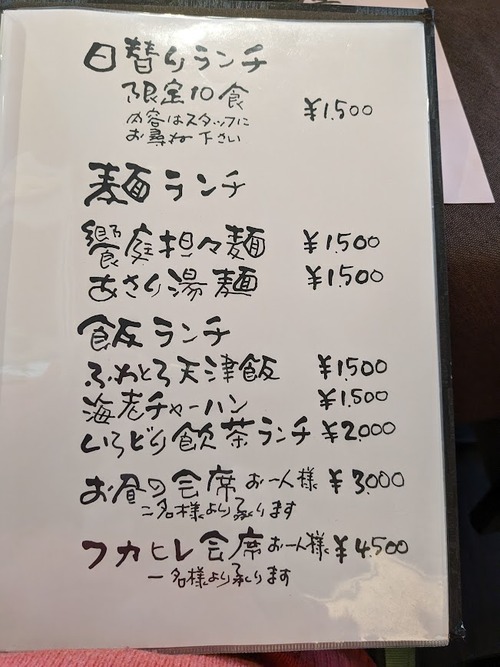 日替りランチ
限定10食
内容はスタッフに ¥1,500
お尋ね下さい
麺ランチ
饗庭担々麺 ¥1,500
あさり湯麺 ¥1,500
飯ランチ
ふわとろ天津飯 ¥1,500
海老チャーハン ¥1,500
いろどり飲茶ランチ ¥2,000
お昼の会席 お一人様 ¥3,000
二名様より承ります
フカヒレ会席 お一人様 ¥4,500
一名様より承ります